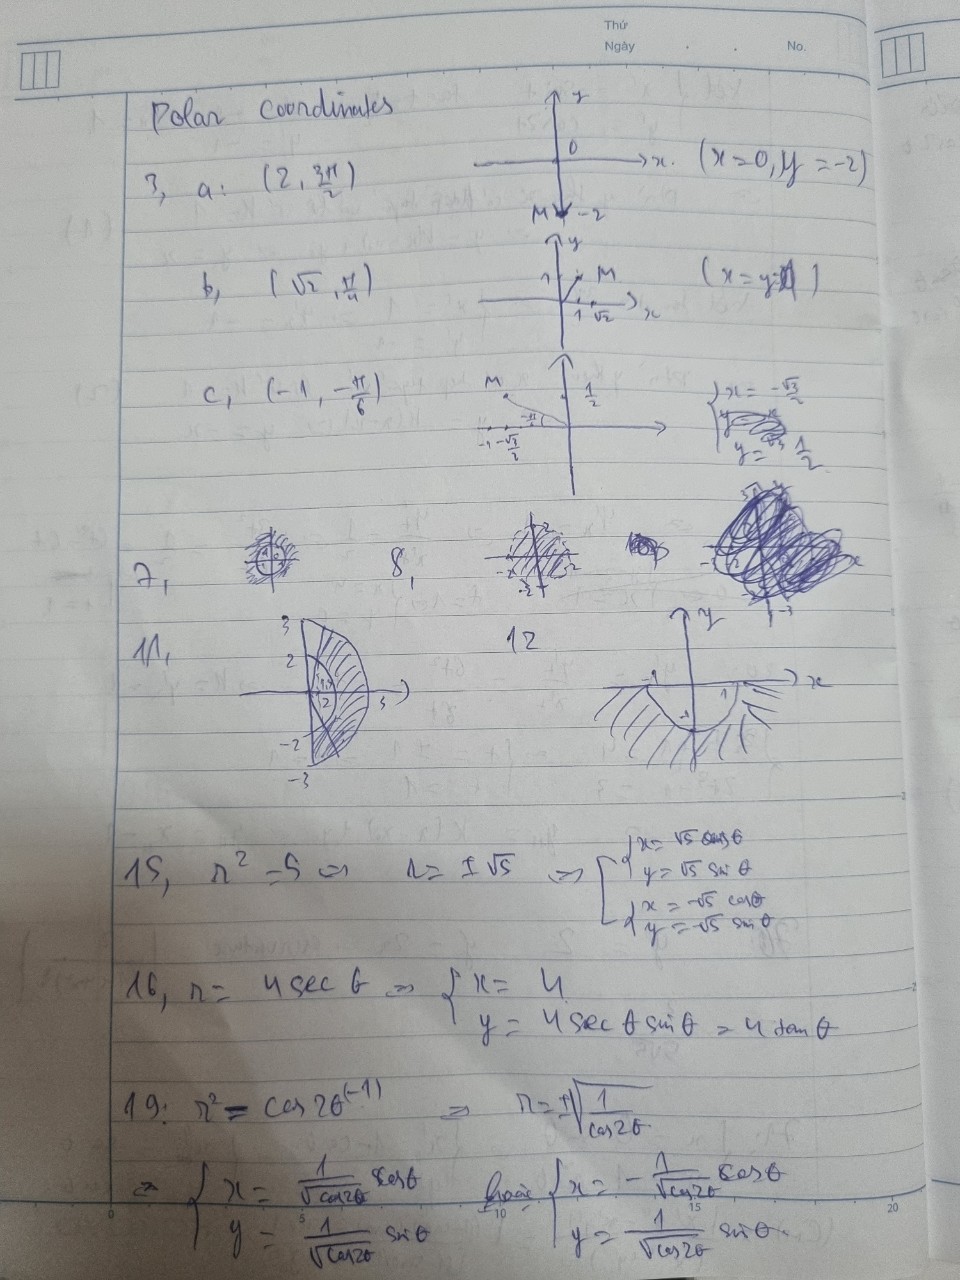 Thứ
Ngày . . No.
Polar coordinates
3, a: (2, 3π/2) y 0 x (x=0, y=-2)
M -2
b, (√2, π/4) y 1 M 1 √2 x (x=y=1)
c, (-1, -π/6) M 1/2 -π/6 -1 -√3/2 { x = -√3/2
y = 1/2
7, 8, 2 -2 2 -2
11, 3 2 2 3 -2 -3 12 y -1 1 x -1
15, r² = 5 => r = ±√5 => [ { x = √5 cosθ
y = √5 sinθ
{ x = -√5 cosθ
y = -√5 sinθ
16, r = 4 sec θ => { x = 4
y = 4 sec θ sinθ = 4 tanθ
19: r² = cos 2θ^(-1) => r = ±√(1/cos2θ)
=> { x = 1/√cos2θ cosθ hoặc { x = - 1/√cos2θ cosθ
y = 1/√cos2θ sinθ y = - 1/√cos2θ sinθ
0 5 10 15 20